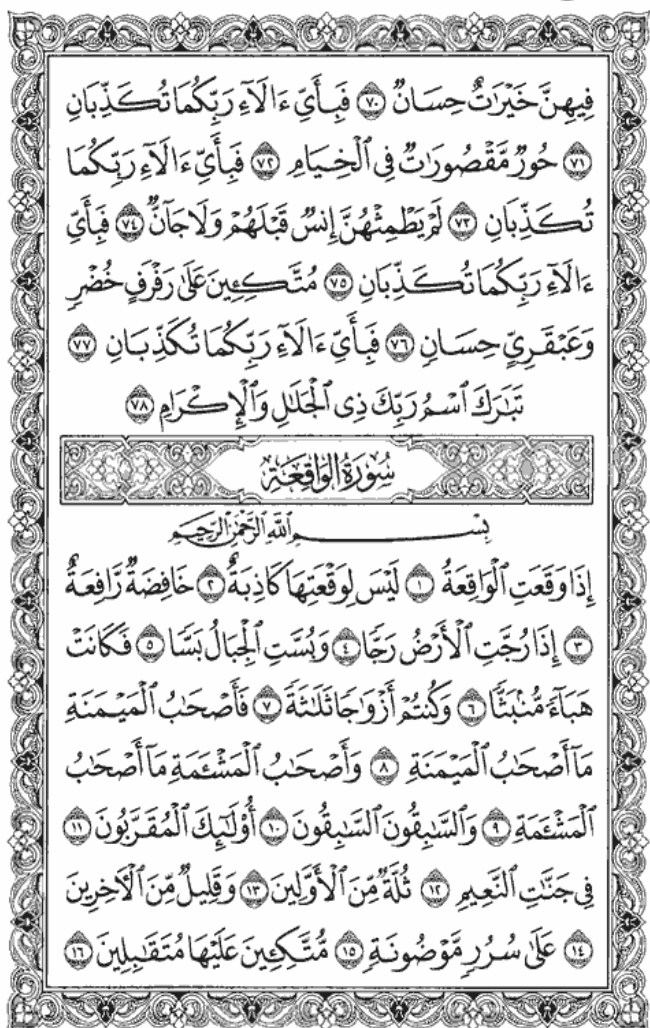 فِيهِنَّ خَيْرَٰتٌ حِسَانٌ ٧٠ فَبِأَيِّ ءَالَآءِ رَبِّكُمَا تُكَذِّبَانِ
٧١ حُورٌ مَّقْصُورَٰتٌ فِى ٱلْخِيَامِ ٧٢ فَبِأَيِّ ءَالَآءِ رَبِّكُمَا
تُكَذِّبَانِ ٧٣ لَمْ يَطْمِثْهُنَّ إِنسٌ قَبْلَهُمْ وَلَا جَآنٌّ ٧٤ فَبِأَيِّ
ءَالَآءِ رَبِّكُمَا تُكَذِّبَانِ ٧٥ مُتَّكِـِٔينَ عَلَىٰ رَفْرَفٍ خُضْرٍ
وَعَبْقَرِىٍّ حِسَانٍ ٧٦ فَبِأَيِّ ءَالَآءِ رَبِّكُمَا تُكَذِّبَانِ ٧٧
تَبَٰرَكَ ٱسْمُ رَبِّكَ ذِى ٱلْجَلَٰلِ وَٱلْإِكْرَامِ ٧٨
سُورَةُ الوَاقِعَةِ
بِسْمِ ٱللَّهِ ٱلرَّحْمَٰنِ ٱلرَّحِيمِ
إِذَا وَقَعَتِ ٱلْوَاقِعَةُ ١ لَيْسَ لِوَقْعَتِهَا كَاذِبَةٌ ٢ خَافِضَةٌ رَّافِعَةٌ
٣ إِذَا رُجَّتِ ٱلْأَرْضُ رَجًّا ٤ وَبُسَّتِ ٱلْجِبَالُ بَسًّا ٥ فَكَانَتْ
هَبَآءً مُّنۢبَثًّا ٦ وَكُنتُمْ أَزْوَٰجًا ثَلَٰثَةً ٧ فَأَصْحَٰبُ ٱلْمَيْمَنَةِ
مَآ أَصْحَٰبُ ٱلْمَيْمَنَةِ ٨ وَأَصْحَٰبُ ٱلْمَشْـَٔمَةِ مَآ أَصْحَٰبُ
ٱلْمَشْـَٔمَةِ ٩ وَٱلسَّٰبِقُونَ ٱلسَّٰبِقُونَ ١٠ أُو۟لَٰٓئِكَ ٱلْمُقَرَّبُونَ ١١
فِى جَنَّٰتِ ٱلنَّعِيمِ ١٢ ثُلَّةٌ مِّنَ ٱلْأَوَّلِينَ ١٣ وَقَلِيلٌ مِّنَ ٱلْءَاخِرِينَ
١٤ عَلَىٰ سُرُرٍ مَّوْضُونَةٍ ١٥ مُّتَّكِـِٔينَ عَلَيْهَا مُتَقَٰبِلِينَ ١٦